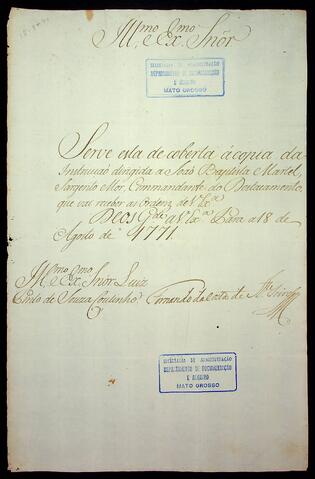 Ill.mo e Ex.mo Snõr
SECRETARIA DE ADMINISTRAÇÃO
DEPARTAMENTO DE DOCUMENTAÇÃO
E ARQUIVO
MATO GROSSO
Serve esta de coberta á copia da
Instrucaõ dirigida a Joaõ Baptista Martel,
Sargento Mór, Commandante do Destacamento,
que vai receber as Ordenz de V Ex.a
Deos G.de a V Ex.a Pará a 18 de
Agosto de 1771
Ill.mo e Ex.mo Snõr Luiz
Pinto de Souza Coutinho
Fernando da Costa de
SECRETARIA DE ADMINISTRAÇÃO
DEPARTAMENTO DE DOCUMENTAÇÃO
E ARQUIVO
MATO GROSSO